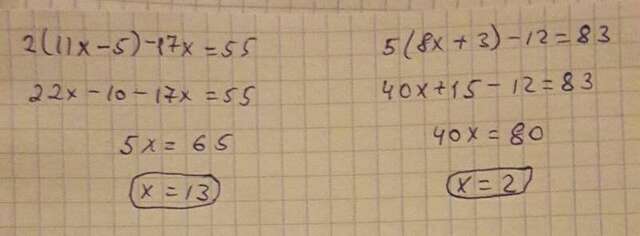 2(11x-5)-17x=55
22x-10-17x=55
5x=65
x=13
5(8x+3)-12=83
40x+15-12=83
40x=80
x=2